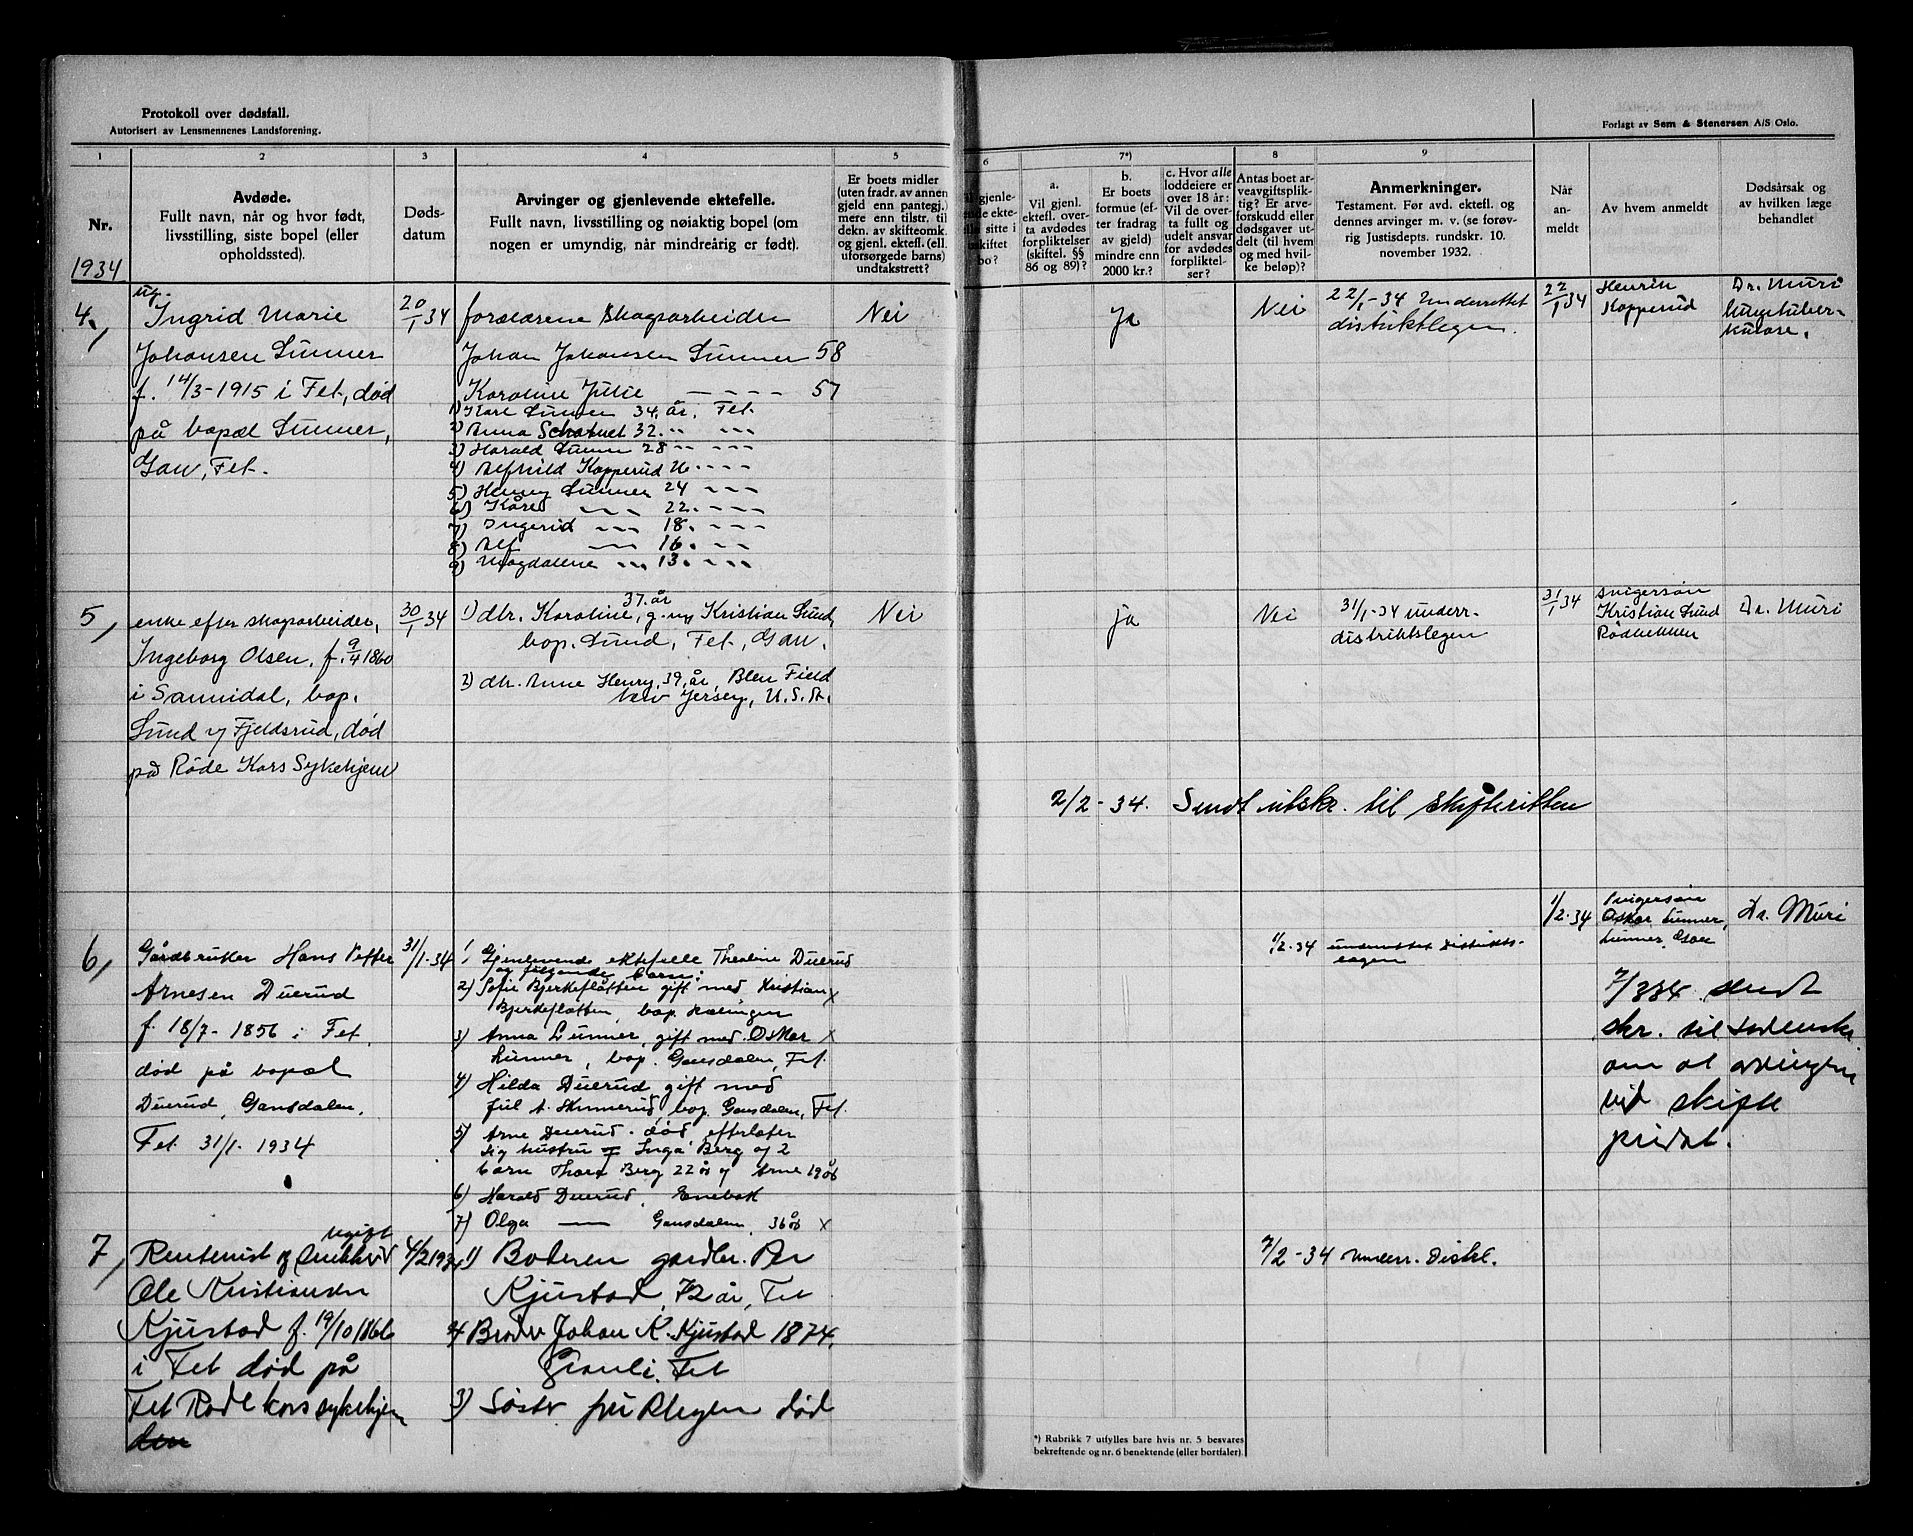 Protokoll over dødsfall.
Autorisert av Lensmennenes Landsforening.
Forlagt av Sem & Stenersen A/S Oslo.
1
2
3
4
5
6
7*)
8
9
Nr.
1934
Avdøde.
Fullt navn, når og hvor født,
livsstilling, siste bopel (eller
opholdssted).
Døds-
datum
Arvinger og gjenlevende ektefelle.
Fullt navn, livsstilling og nøiaktig bopel (om
nogen er umyndig, når mindreårig er født).
Er boets midler
(uten fradr. av annen
gjeld enn pantegj.)
mere enn tilstr. til
dekn. av skifteomk.
og gjenl. ektefl. (ell.
uforsørgede barns)
undtakstrett?
gjenle-
nde ekte-
sitte i
skiftet
bo?
a.
Vil gjenl.
ektefl. over-
ta avdødes
forpliktelser
(skiftel. §§
86 og 89)?
b.
Er boets
formue (ef-
ter fradrag
av gjeld)
mindre enn
2000 kr.?
c. Hvor alle
loddeiere er
over 18 år:
Vil de over-
ta fullt og
udelt ansvar
for avdødes
forpliktel-
ser?
Antas boet ar-
veavgiftsplik-
tig? Er arve-
forskudd eller
dødsgaver ut-
delt (til hvem
og med hvil-
ke beløp)?
Anmerkninger.
Testament. Før avd. ektefl. og
dennes arvinger m. v. (se forøv-
rig Justisdepts. rundskr. 10.
november 1932.
Når
an-
meldt
Av hvem anmeldt
Dødsårsak og
av hvilken læge
behandlet
4,
ug.
Ingrid Marie
Johansen Lunner
f. 14/3-1915 i Fet, død
på bopæl Lunner,
Gan, Fet.
20/1 34
forældrene Skogsarbeider
Johan Johansen Lunner 58
Karoline Julie — — — — 57
1) Kare Lunner 34 år, Fet
2) Anna 32. " — —
3) Harald Lunner 28 " — —
4) Alfhild Kopperud 26 — — —
5) Henry Lunner 24 — — —
6) Kåre — — 22. — — —
7) Ingerid — — 18. — — —
8) Alf — — 16. — —
9) Magdalene — — 13. — — —
Nei
Ja
Nei
22/1-34 Underrettet
distriktslegen.
22/1 34
Henrik
Kopperud
Dr. Muri
Lungetuber-
kulose.
5,
enke efter skogsarbeider,
Ingeborg Olsen, f. 9/4 1860
i Sannidal, bop.
Lund v/ Fjeldsrud, død
på Røde Kors Sykehjem
30/1 34
37 år
1) dtr. Karoline, g. m/ Kristian Lund,
bop. Lund, Fet, Gan.
2) dtr. Anne Henry, 39 år, Blen Field
New Jersey, U.S.A.
Nei
ja
Nei
31/1-34 underr.
distriktslegen
31/1 34
Svigersøn
Kristian Lund
Rødbekken
Dr. Muri
2/2-34. Sendt utskr. til skifteretten
6,
Gårdbruker Hans Petter
Arnesen Duerud
f. 18/7-1856 i Fet,
død på bopæl
Duerud, Gansdalen,
Fet 31/1-1934
31/1-34
1) Gjenlevende ektefelle Theoline Duerud
og følgende barn:
2) Sofie Bjerkeflåtten gift med Kristian x
Bjerkeflåtten, bop. Rælingen
3) Anna Lunner, gift med Oskar x
Lunner, bop. Gansdalen, Fet.
4) Hilda Duerud gift med
bop. Gansdalen, Fet.
5) Arne Duerud død efterlater
sig hustru Inga Berg og 2
barn Thora Berg 22 år og Arne 19 år
6) Harald Duerud, Enebak
7) Olga — Gansdalen 36 år x
1/2-34 underrettet distrikts-
legen
1/2-34
Svigersøn
Oskar Lunner,
Lunner, Gan
Dr. Muri
7/3 34 sendt
skr. til
om at arvingene
vil skifte
privat.
7,
ugift
Rentenist og
Ole Kristiansen
Kjustad f. 19/10 1866
i Fet død på
Fet Røde kors sykehjem
den
4/2 1934
1) Broderen gardbr. Per
Kjustad, 72 år, Fet
2) Broder Johan K. Kjustad 1874.
Fet
3) Søster fru død
7/2-34 Underr. Distrl.
*) Rubrikk 7 utfylles bare hvis nr. 5 besvares
bekreftende og nr. 6 benektende (eller bortfaler).